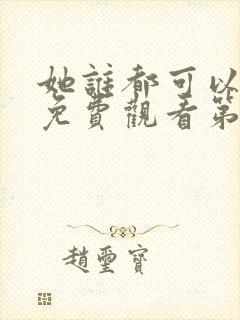 她誰都可以
免費觀看第
趙璽寶